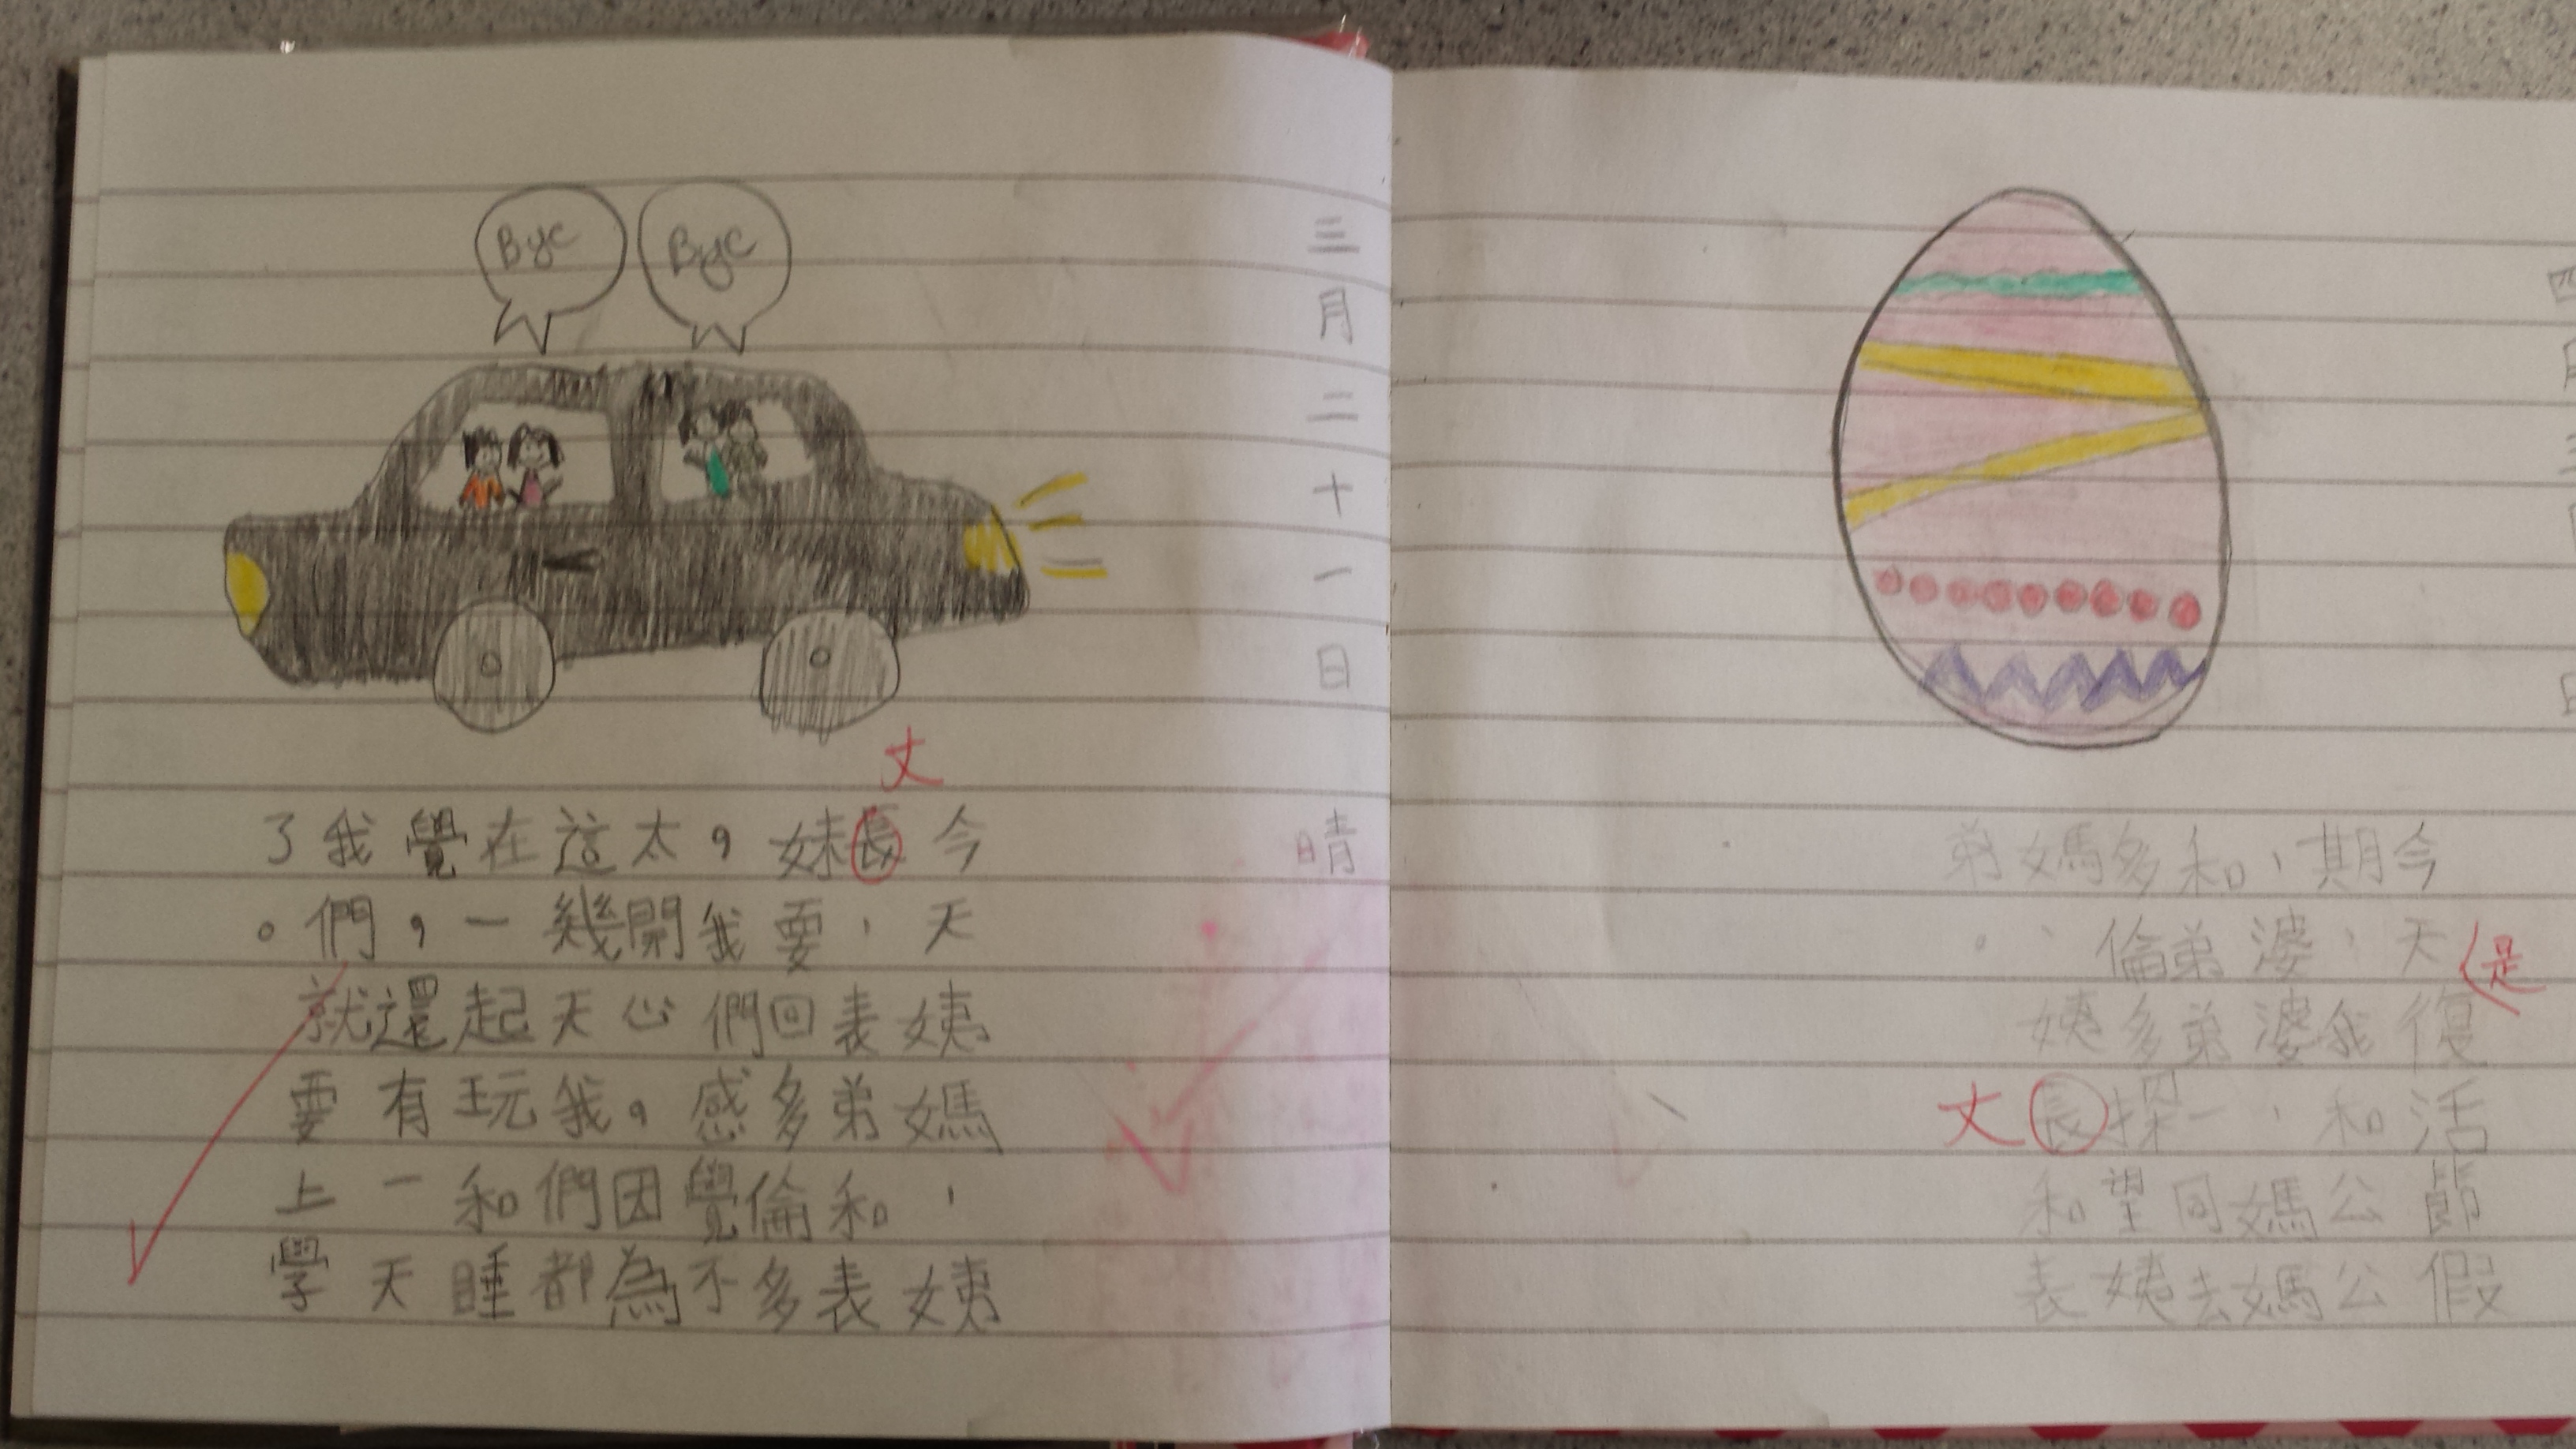 Bye
Bye
三月三十一日 晴
今天姨媽、姨
丈
長、表弟和表
妹要回多倫多
，我們感覺不
太開心。因為
這幾天我們都
在一起玩和睡
覺，還有一天
我們就要上學
了。
今天復活節假
是
期，我和公公
、婆婆、媽媽
和弟弟一同去
多倫多探望姨
媽、姨長和表
丈
弟。